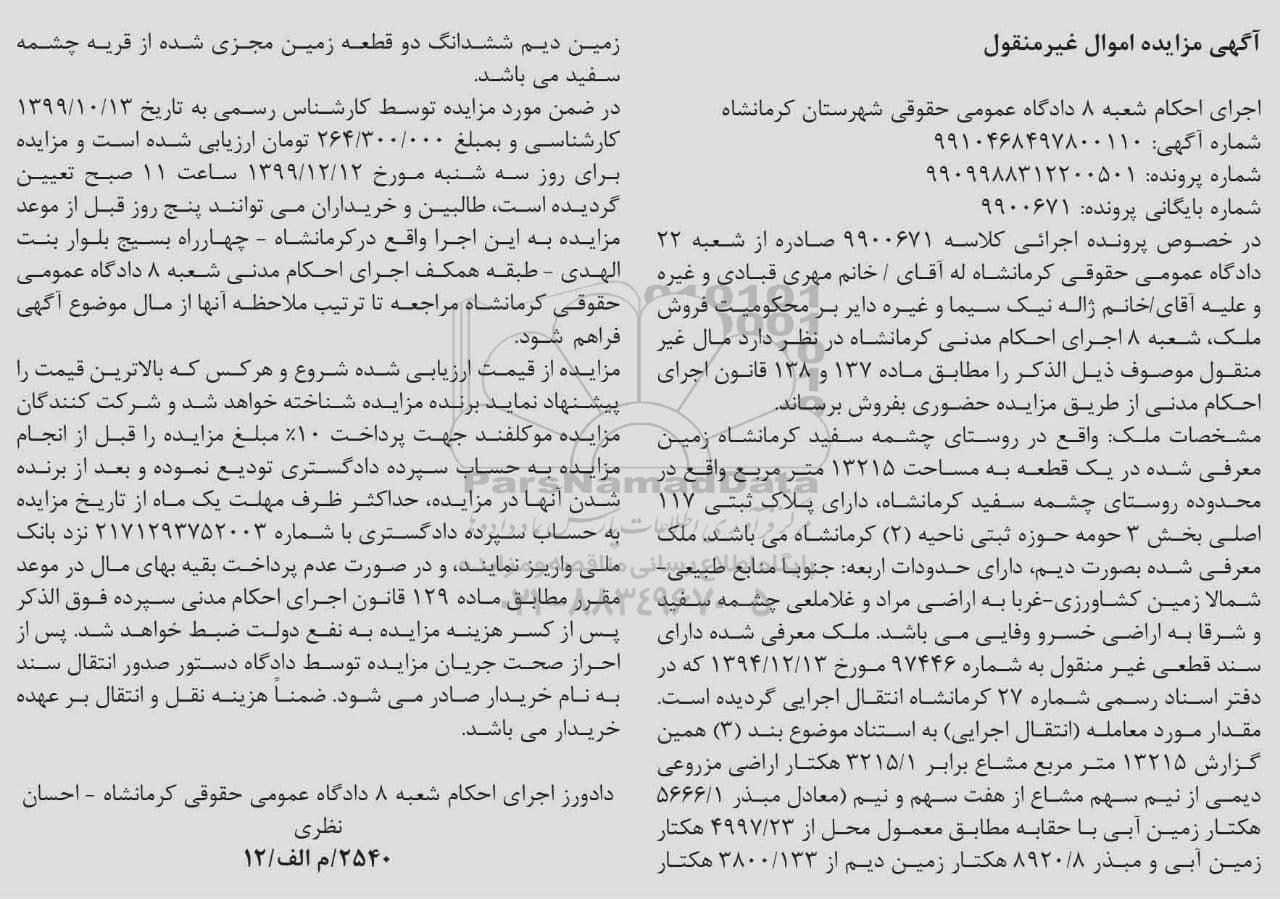 آگهی مزایده اموال غیرمنقول
اجرای احکام شعبه ۸ دادگاه عمومی حقوقی شهرستان کرمانشاه
شماره آگهی: ۹۹۱۰۴۶۸۴۹۷۸۰۰۱۱۰
شماره پرونده: ۹۹۰۹۹۸۸۳۱۲۲۰۰۵۰۱
شماره بایگانی پرونده: ۹۹۰۰۶۷۱
در خصوص پرونده اجرائی کلاسه ۹۹۰۰۶۷۱ صادره از شعبه ۲۲
دادگاه عمومی حقوقی کرمانشاه له آقای / خانم مهری قبادی و غیره
و علیه آقای/خانم ژاله نیک سیما و غیره دایر بر محکومیت فروش
ملک، شعبه ۸ اجرای احکام مدنی کرمانشاه در نظر دارد مال غیر
منقول موصوف ذیل الذکر را مطابق ماده ۱۳۷ و ۱۳۸ قانون اجرای
احکام مدنی از طریق مزایده حضوری بفروش برساند.
مشخصات ملک: واقع در روستای چشمه سفید کرمانشاه زمین
معرفی شده در یک قطعه به مساحت ۱۳۲۱۵ متر مربع واقع در
محدوده روستای چشمه سفید کرمانشاه، دارای پلاک ثبتی ۱۱۷
اصلی بخش ۳ حومه حوزه ثبتی ناحیه (۲) کرمانشاه می باشد. ملک
معرفی شده بصورت دیم، دارای حدودات اربعه: جنوبا منابع طبیعی-
شمالا زمین کشاورزی-غربا به اراضی مراد و غلاملعی چشمه سفید
و شرقا به اراضی خسرو وفایی می باشد. ملک معرفی شده دارای
سند قطعی غیر منقول به شماره ۹۷۴۴۶ مورخ ۱۳۹۴/۱۲/۱۳ که در
دفتر اسناد رسمی شماره ۲۷ کرمانشاه انتقال اجرایی گردیده است.
مقدار مورد معامله (انتقال اجرایی) به استناد موضوع بند (۳) همین
گزارش ۱۳۲۱۵ متر مربع مشاع برابر ۳۲۱۵/۱ هکتار اراضی مزروعی
دیمی از نیم سهم مشاع از هفت سهم و نیم (معادل مبذر ۵۶۶۶/۱
هکتار زمین آبی با حقابه مطابق معمول محل از ۴۹۹۷/۲۳ هکتار
زمین آبی و مبذر ۸۹۲۰/۸ هکتار زمین دیم از ۳۸۰۰/۱۳۳ هکتار
زمین دیم ششدانگ دو قطعه زمین مجزی شده از قریه چشمه
سفید می باشد.
در ضمن مورد مزایده توسط کارشناس رسمی به تاریخ ۱۳۹۹/۱۰/۱۳
کارشناسی و بمبلغ ۲۶۴/۳۰۰/۰۰۰ تومان ارزیابی شده است و مزایده
برای روز سه شنبه مورخ ۱۳۹۹/۱۲/۱۲ ساعت ۱۱ صبح تعیین
گردیده است، طالبین و خریداران می توانند پنج روز قبل از موعد
مزایده به این اجرا واقع درکرمانشاه - چهارراه بسیج بلوار بنت
الهدی - طبقه همکف اجرای احکام مدنی شعبه ۸ دادگاه عمومی
حقوقی کرمانشاه مراجعه تا ترتیب ملاحظه آنها از مال موضوع آگهی
فراهم شود.
مزایده از قیمت ارزیابی شده شروع و هرکس که بالاترین قیمت را
پیشنهاد نماید برنده مزایده شناخته خواهد شد و شرکت کنندگان
مزایده موکلفند جهت پرداخت ۱۰٪ مبلغ مزایده را قبل از انجام
مزایده به حساب سپرده دادگستری تودیع نموده و بعد از برنده
شدن آنها در مزایده، حداکثر ظرف مهلت یک ماه از تاریخ مزایده
به حساب سپرده دادگستری با شماره ۲۱۷۱۲۹۳۷۵۲۰۰۳ نزد بانک
ملی واریز نمایند، و در صورت عدم پرداخت بقیه بهای مال در موعد
مقرر مطابق ماده ۱۲۹ قانون اجرای احکام مدنی سپرده فوق الذکر
پس از کسر هزینه مزایده به نفع دولت ضبط خواهد شد. پس از
احراز صحت جریان مزایده توسط دادگاه دستور صدور انتقال سند
به نام خریدار صادر می شود. ضمناً هزینه نقل و انتقال بر عهده
خریدار می باشد.
دادورز اجرای احکام شعبه ۸ دادگاه عمومی حقوقی کرمانشاه - احسان
نظری
۲۵۴۰/م الف/۱۲
ParsNamadData
پایگاه اطلاع رسانی مناقصه و مزایده
۰۲۱-۸۸۳۴۹۶۷۰-۵